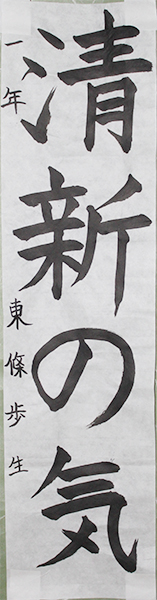 清新の気
一年 東條歩生